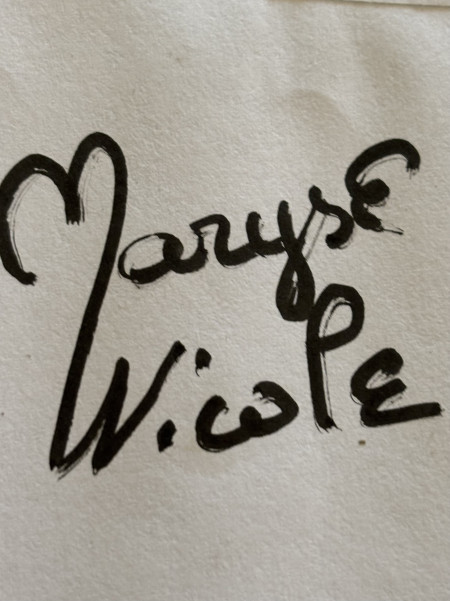 Marysе
Nicole